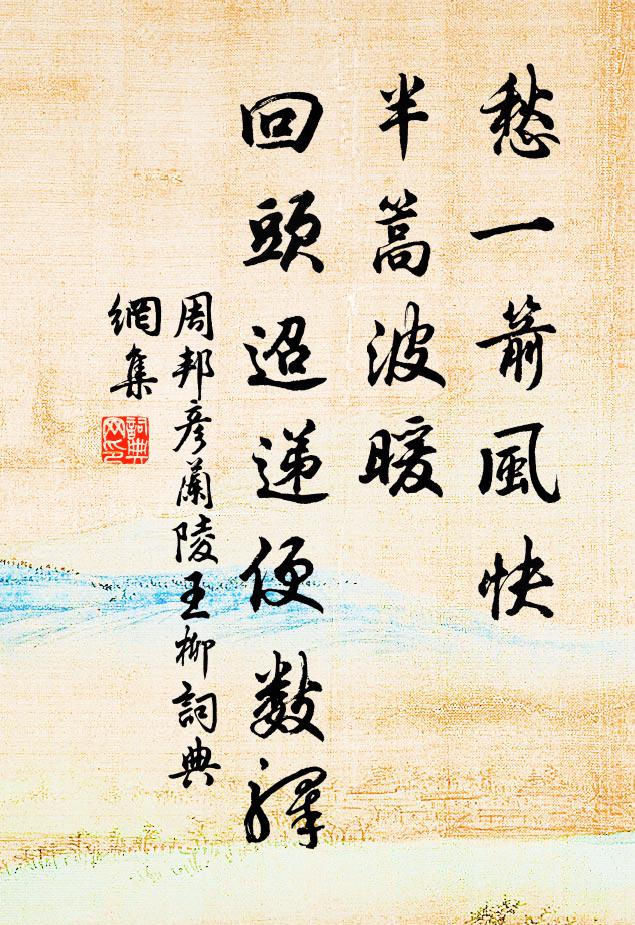 愁一箭風快
半篙波暖
回頭迢遞便數驛
周邦彥蘭陵王柳詞典
網集
詞典
网印